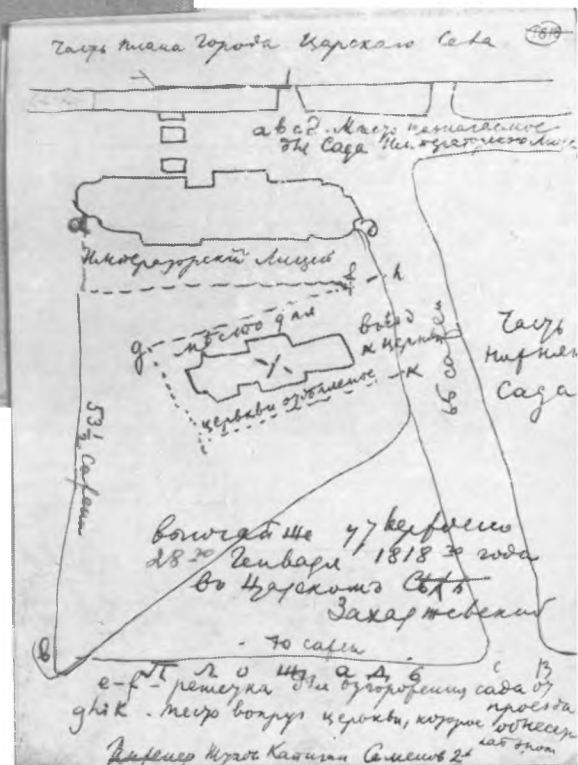 Часть плана Города Царскаго Села
1818
a b c d. Место назначаемое
для Сада Императ. Лицея
Императорский Лицей
f h
g место для въезд
к церкви
церкви к
65 са
Часть
Нижнего
Сада
53 1/2 сажени
высочайше утверждено
28го Генваря 1818го года
въ Царскомъ Селѣ
Захаржевский
70 сажен
в площадь с В
e-f - решетка для отгорожения сада от
проезда
ghik. место вокруг церькви, которое обнесен
Инженер Капитан Семенов 2й